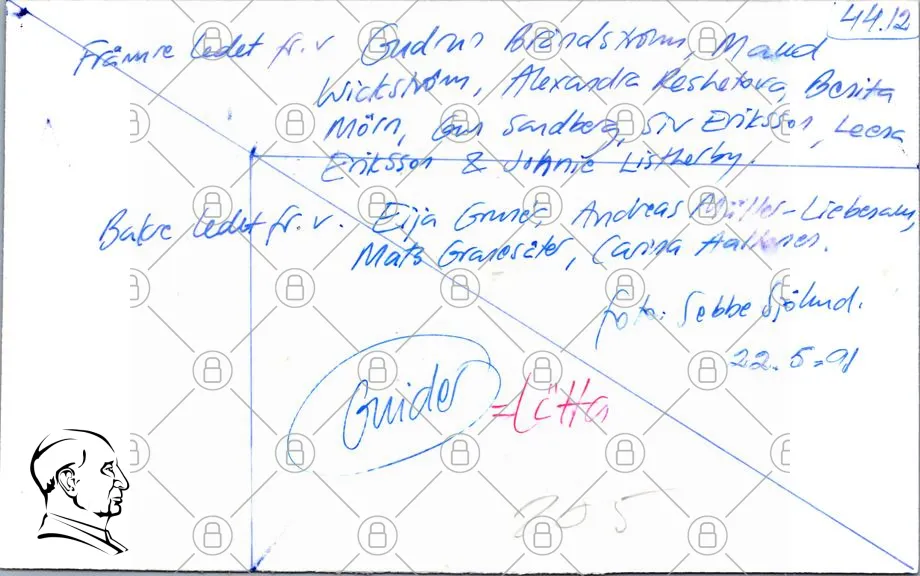 44.12
Främre ledet fr. v Gudrun Brändström, Maud
Wickström, Alexandra Reshetova, Benita
Mörn, Gun Sandberg, Siv Eriksson, Leena
Eriksson & Johnie Listherby.
Bakre ledet fr. v. Eija Andreas Müller-Lieberam,
Mats Carina
foto: Sebbe Sjölund.
22.5-91
Guider =Lotta
205